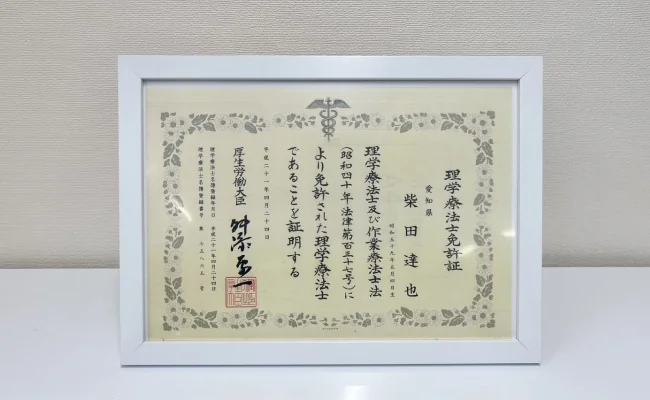 理学療法士免許証
愛知県
柴田達也
昭和五十九年五月四日生
理学療法士及び作業療法士法
(昭和四十年法律第百三十七号)に
より免許された理学療法士
であることを証明する
平成二十一年四月二十四日
厚生労働大臣
舛添要一
理学療法士名簿登録年月日 平成二十一年四月二十四日
理学療法士名簿登録番号 第 号